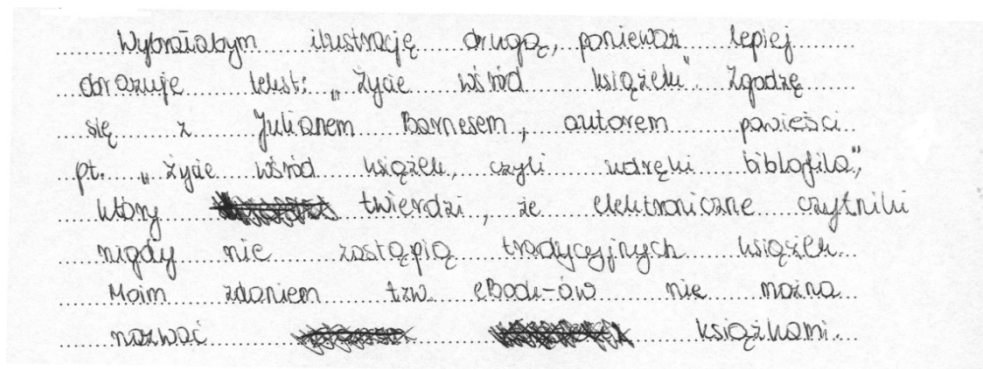 Wybrałabym ilustrację drugą, ponieważ lepiej
obrazuje tekst: „Życie wśród książek". Zgodzę
się z Julianem Barnesem, autorem powieści
pt. „Życie wśród książek, czyli udręki bibliofila",
który twierdzi, że elektroniczne czytniki
nigdy nie zastąpią tradycyjnych książek.
Moim zdaniem tzw. eBook-ów nie można
nazwać książkami.